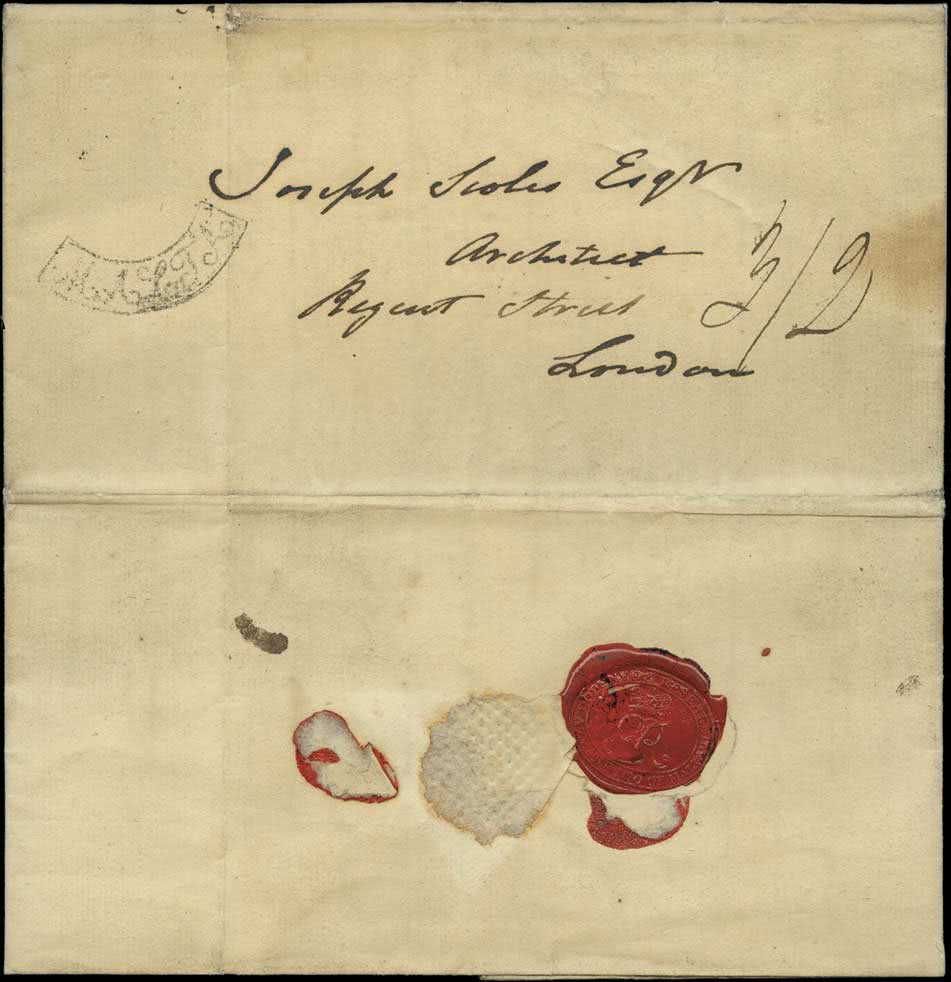 Joseph Scoles Esqr
Architect
Regent Street
London
2/2
MALTA